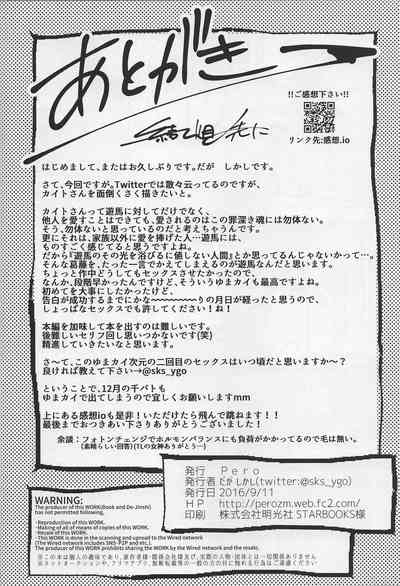 あとがきー
!!ご感想下さい!!
リンク先:感想.io
はじめまして、またはお久しぶりです。だが しかしです。
さて、今回ですが。Twitterでは散々云ってるのですが、
カイトさんを面倒くさく描きたいと。
カイトさんって遊馬に対してだけでなく、
他人を愛すことはできても、愛されるのはこの罪深き魂には勿体ない。
そう、勿体ないと思っているのだと考えちゃうんです。
更にそれは、家族以外に愛を捧げた人…遊馬には、
ものすごく感じてると思うですよね。
だから『遊馬のその光を浴びるに値しない人間』とか思ってるんじゃないかって…。
そんな葛藤を、たった一言でかえてしまえるのが遊馬なんだと思います。
ちょっと作中どうしてもセックスさせたかったので、
なんか、段階早かったんですけど、そういうゆまカイも最高ですよね。
初めてを大事にしたかったけど、
告白が成功するまでにかな〜〜〜〜〜〜〜りの月日が経ったと思うので、
しょっぱなセックスでも許してください!ね!
本編を加味して本を出すのは難しいです。
後難しいセリフ回し思いつかないです(笑)
精進していきたいなと思います。
さ〜て、このゆまカイ次元の二回目のセックスはいつ頃だと思いますか〜?
良ければ教えて下さい→@sks_ygo
ということで、12月の千バトも
ゆまカイで出てしまうので宜しくお願いしますmm
上にある感想ioも是非!いただけたら飛んで跳ねます!!
最後までおつきあい下さりありがとうございました!
余談:フォトンチェンジでホルモンバランスにも負荷がかかってるので毛は無い。
(素晴らしい回答)(TLの女神ありがとうー)
発行 Pero
発行者 だがしかし(twitter:@sks_ygo)
発行日 2016/9/11
HP http://perozm.web.fc2.com/
印刷 株式会社明光社 STARBOOKS様
WARNING:
The producer of this WORK(Book and Do-Jinshi)
has not permitted following.
・Reproduction of this WORK.
・Making of all of means of copies of this WORK.
・Resale of this WORK.
・This WORK is done in the scanning and upload to the Wired network
(The Wired network includes SNS・P2P and etc.).
The producer of this WORK prohibits sharing the WORK by the Wired network and the resale.